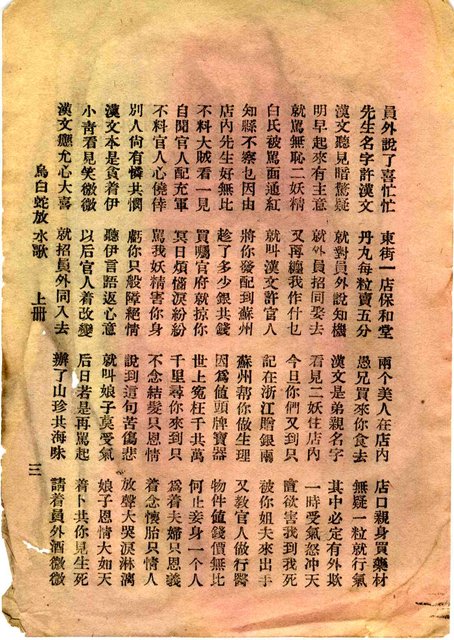 員外說了喜忙忙 東街一店保和堂 兩個美人在店內 店口親身買藥材
先生名字許漢文 丹丸每粒賣五分 愚兄買來你食去 無疑一粒就行氣
漢文聽見暗驚疑 就對員外說知機 漢文是弟親名字 其中必定有外欺
明早起來有主意 就外員招同娶去 看見二妖住店內 一時受氣怒冲天
就罵無恥二妖精 又再纏我作什乜 今旦你們又到只 直欲害我到我死
白氏被罵面通紅 就叫漢文許官人 記在浙江贈銀兩 被你姐夫來出手
知縣不察乜因由 將你發配到蘇州 蘇州帮你做生理 又教官人做行醫
店內先生好無比 趁了多少銀共錢 因爲値頭牌寶器 物件値錢價無比
不料大賊看一見 買囑官府就掠你 世上冤枉千共萬 何止妾身一個人
自聞官人配充軍 冥日煩惱淚紛紛 千里尋你來到只 爲着夫婦只恩義
不料官人心僥倖 罵我妖精害你身 不念結髮只恩情 着念懷胎只情人
別人尙有憐共憫 虧你只般障絕情 說到這句苦傷悲 放聲大哭淚淋漓
漢文本是貪着伊 聽伊言語返心意 就叫娘子莫受氣 娘子恩情大如天
小青看見笑微微 以后官人着改變 后日若是再罵起 着卜共你見生死
漢文癮允心大喜 就招員外同入去 辦了山珍共海味 請着員外酒微微
烏白蛇放水歌 上冊 三